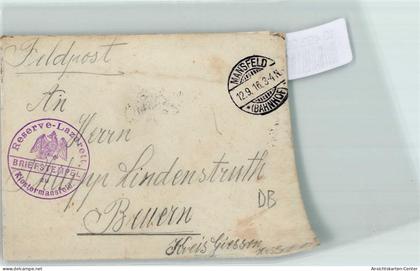 Feldpost
MANSFELD
12.9.16. 3-4 N.
(BAHNHOF)
An
Herrn
Reserve-Lazarett
BRIEFSTEMPEL
Klostermansfeld
Philipp Lindenstruth
DB
Beuern
Kreis Giessen